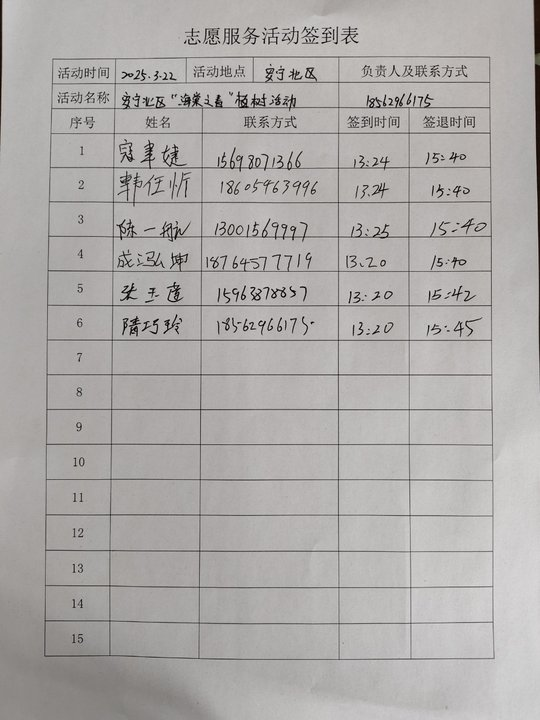 志愿服务活动签到表
活动时间 2025.3.22 活动地点 安宁北区 负责人及联系方式
活动名称 安宁北区“海棠之春”植树活动 18562966175
序号 姓名 联系方式 签到时间 签退时间
1 寇聿婕 15698071366 13:24 15:40
2 韩任忻 18605463996 13.24 15:40
3 陈一航 13001569997 13:25 15:40
4 成泓坤 18764577719 13.20 15:40
5 张玉莲 15963878857 13:20 15:42
6 隋巧玲 18562966175 13:20 15:45
7
8
9
10
11
12
13
14
15